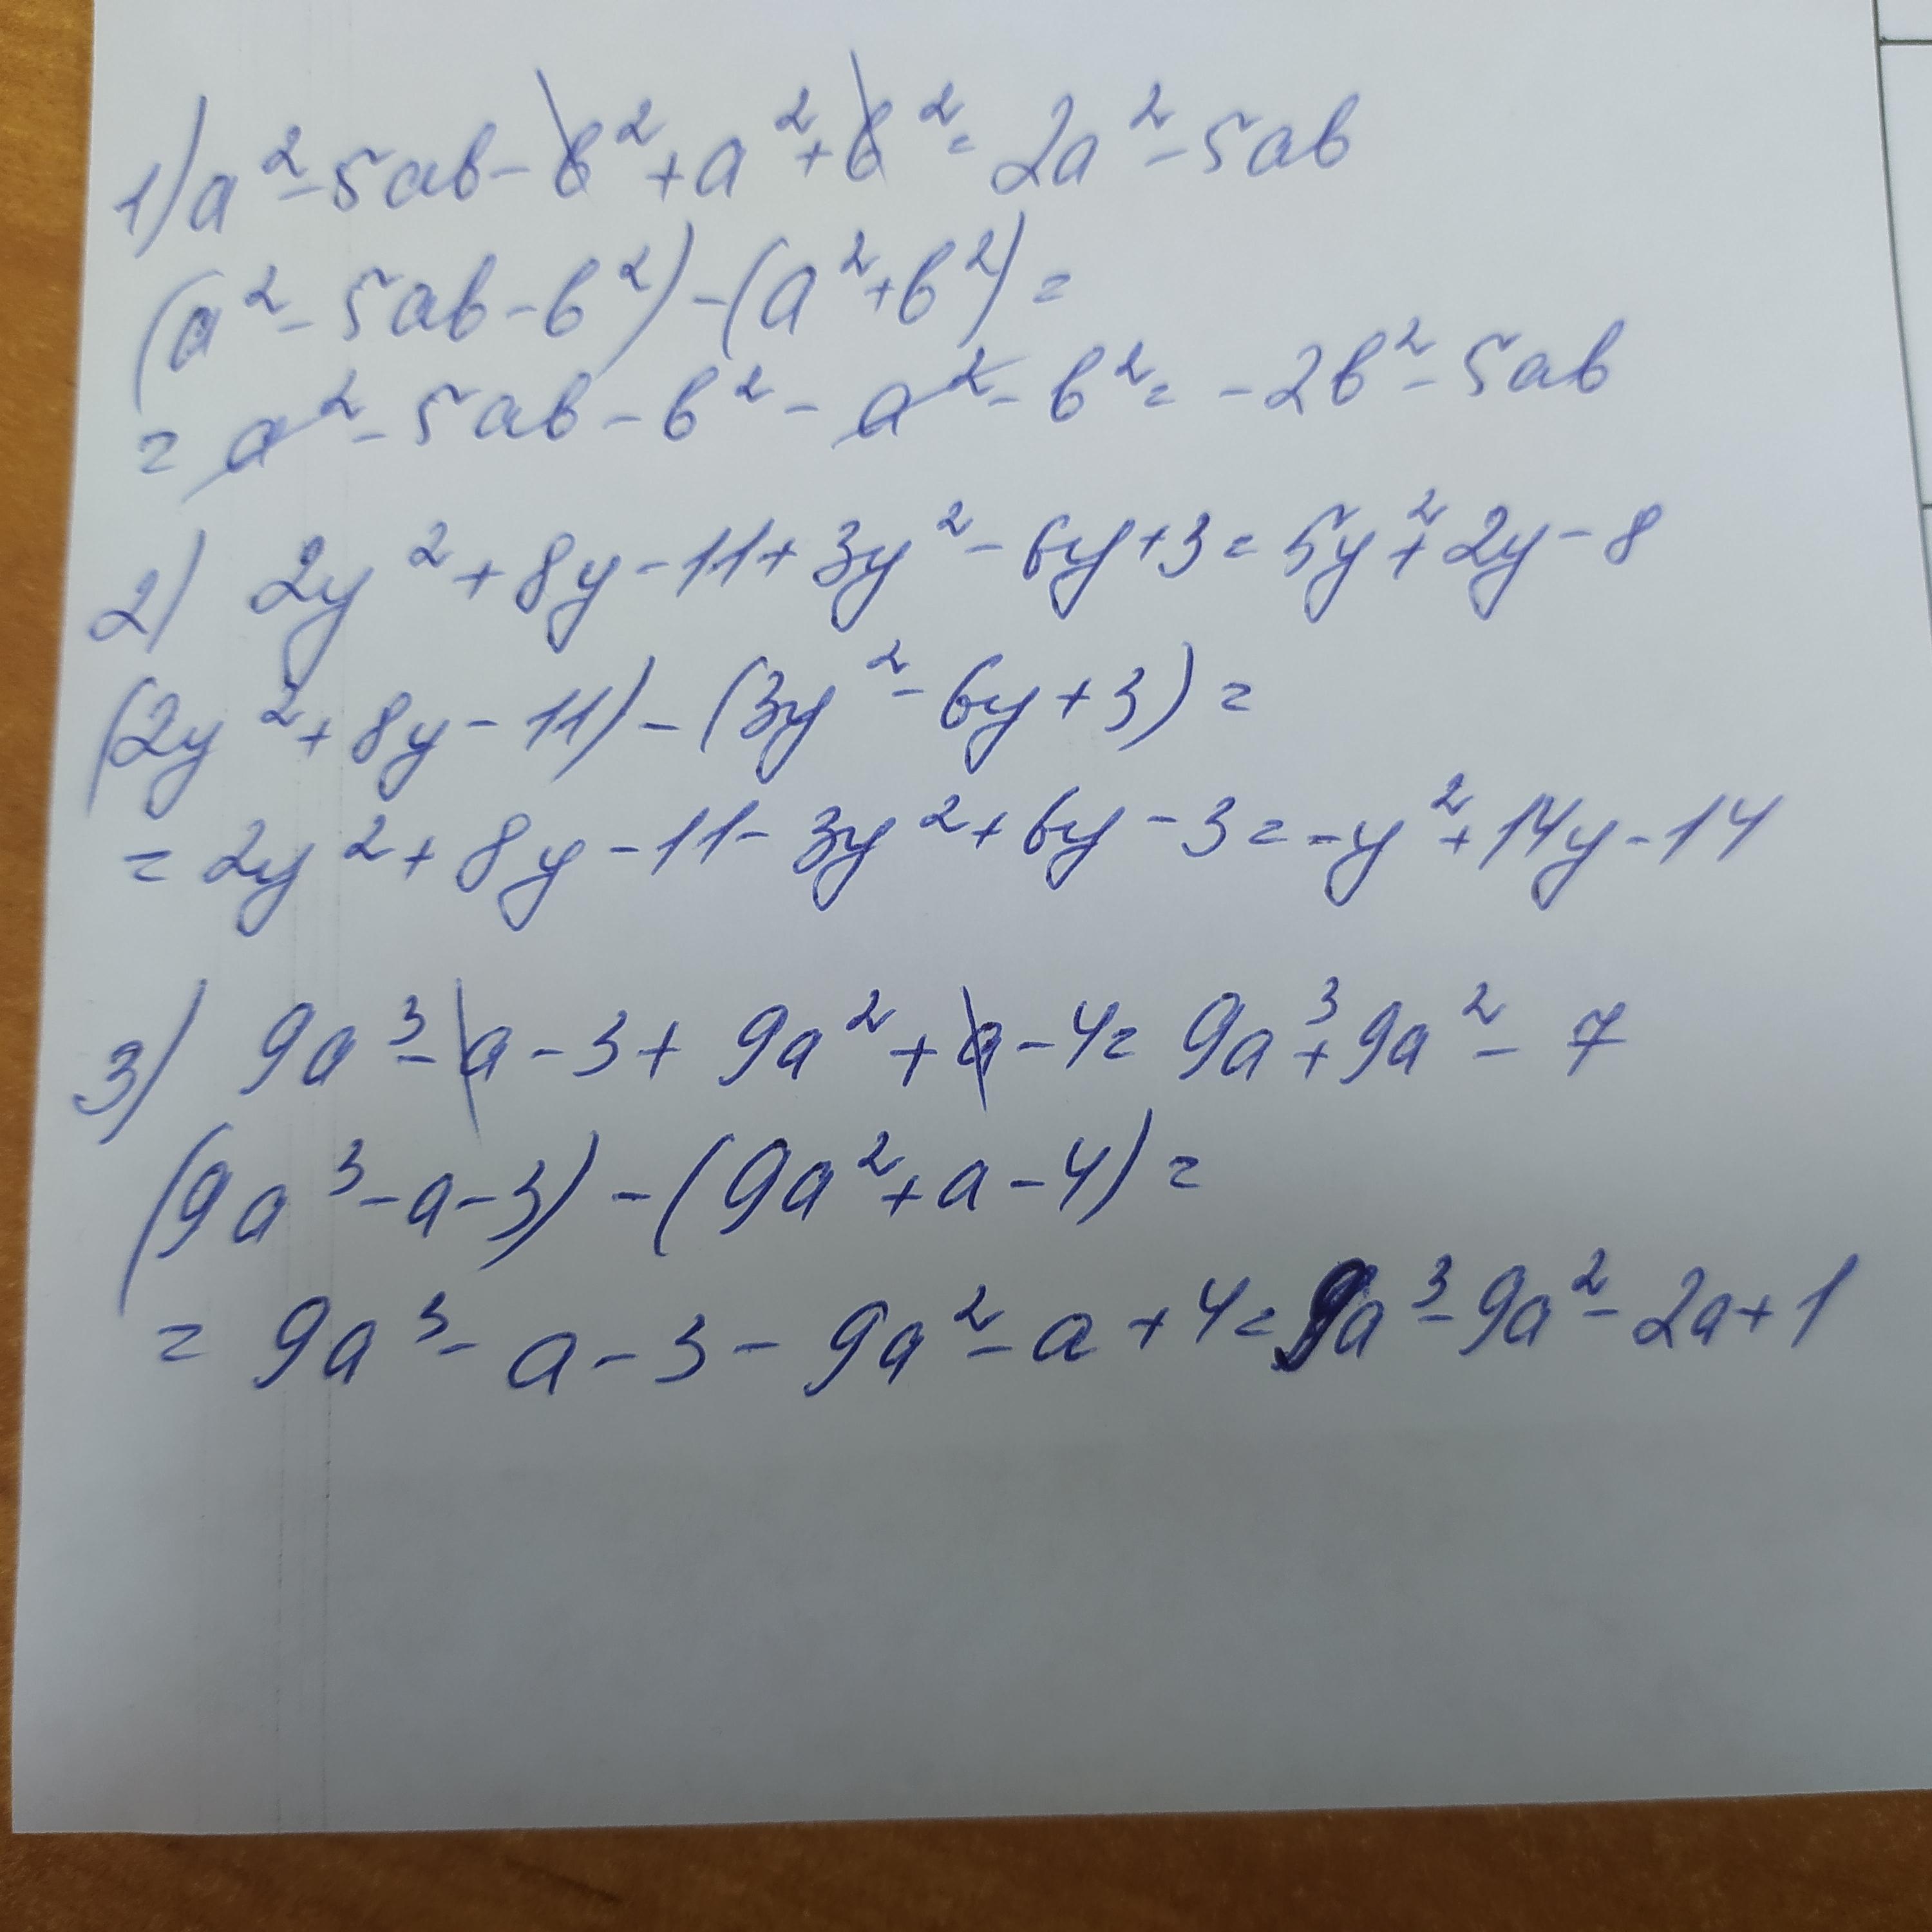 1) a² - 5ab - b² + a² + b² = 2a² - 5ab
(a² - 5ab - b²) - (a² + b²) =
= a² - 5ab - b² - a² - b² = -2b² - 5ab
2) 2y² + 8y - 11 + 3y² - 6y + 3 = 5y² + 2y - 8
(2y² + 8y - 11) - (3y² - 6y + 3) =
= 2y² + 8y - 11 - 3y² + 6y - 3 = -y² + 14y - 14
3) 9a³ - a - 3 + 9a² + a - 4 = 9a³ + 9a² - 7
(9a³ - a - 3) - (9a² + a - 4) =
= 9a³ - a - 3 - 9a² - a + 4 = 9a³ - 9a² - 2a + 1